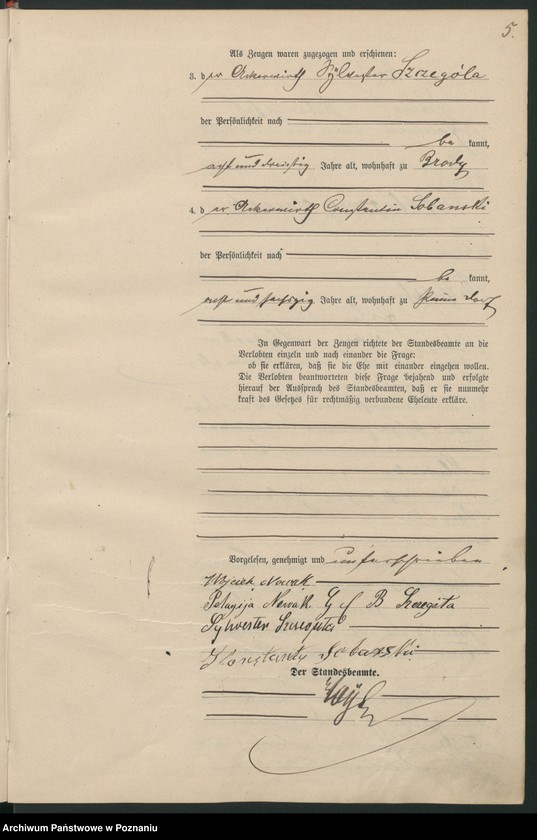 5.
Als Zeugen waren zugezogen und erschienen:
3. der Ackerwirth Sylvester Szczególa
der Persönlichkeit nach
be kannt,
acht und dreissig Jahre alt, wohnhaft zu Brody
4. der Ackerwirth Constantin Sobanski
der Persönlichkeit nach
be kannt,
und sechszig Jahre alt, wohnhaft zu
In Gegenwart der Zeugen richtete der Standesbeamte an die
Verlobten einzeln und nach einander die Frage:
ob sie erklären, daß sie die Ehe mit einander eingehen wollen.
Die Verlobten beantworteten diese Frage bejahend und erfolgte
hierauf der Ausspruch des Standesbeamten, daß er sie nunmehr
kraft des Gesetzes für rechtmäßig verbundene Eheleute erkläre.
Vorgelesen, genehmigt und unterschrieben
Wojciech Nowak
Pelagija Nowak
Sylwester
Konstanty Sobański
Der Standesbeamte.
Archiwum Państwowe w Poznaniu